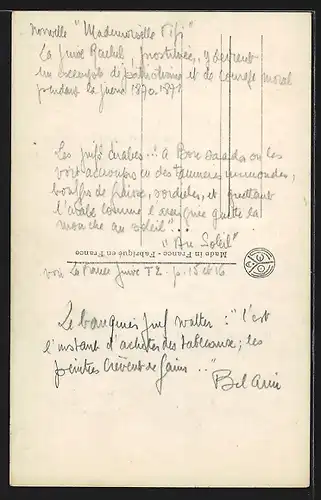 nouvelle "Mademoiselle Fifi"
La juive Rachel, prostituée, y devient
un exemple de patriotisme et de courage moral
pendant la guerre 1870-1871
Les juifs arabes... à Bou Saada on les
voit accroupis en des tanières immondes,
bouffis de graisse, sordides, et guettant
l'arabe comme l'araignée guette la
mouche au soleil"
"Au Soleil"
Made in France - Fabriqué en France
voir La France Juive T2 - p. 15 et 16
Le banquier juif Walter: "c'est
l'instant d'acheter des tableaux; les
peintres crèvent de faim..."
Bel Ami